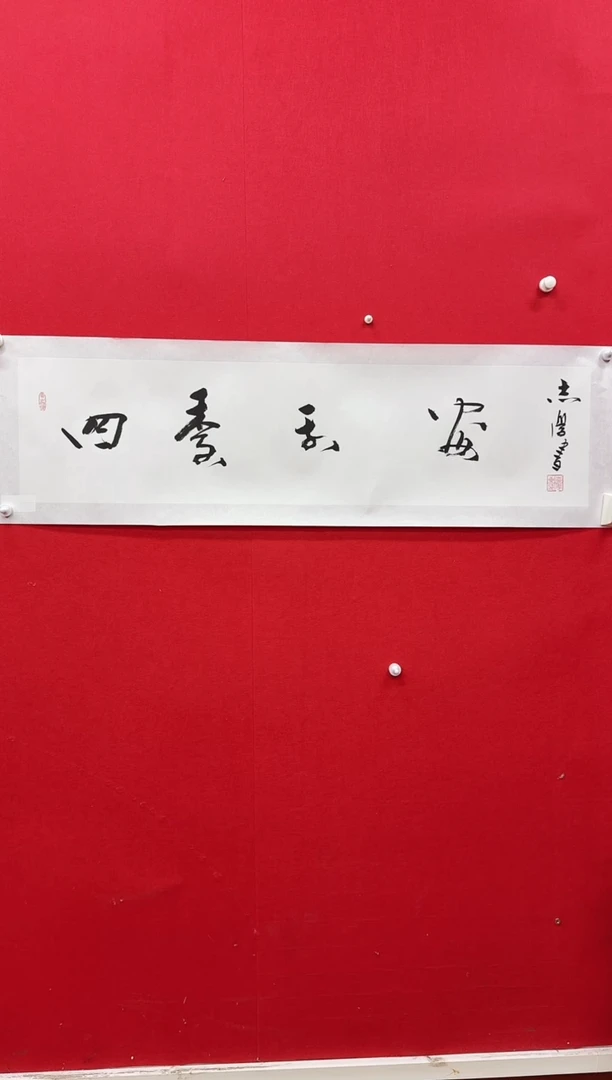 四季平安
志 書